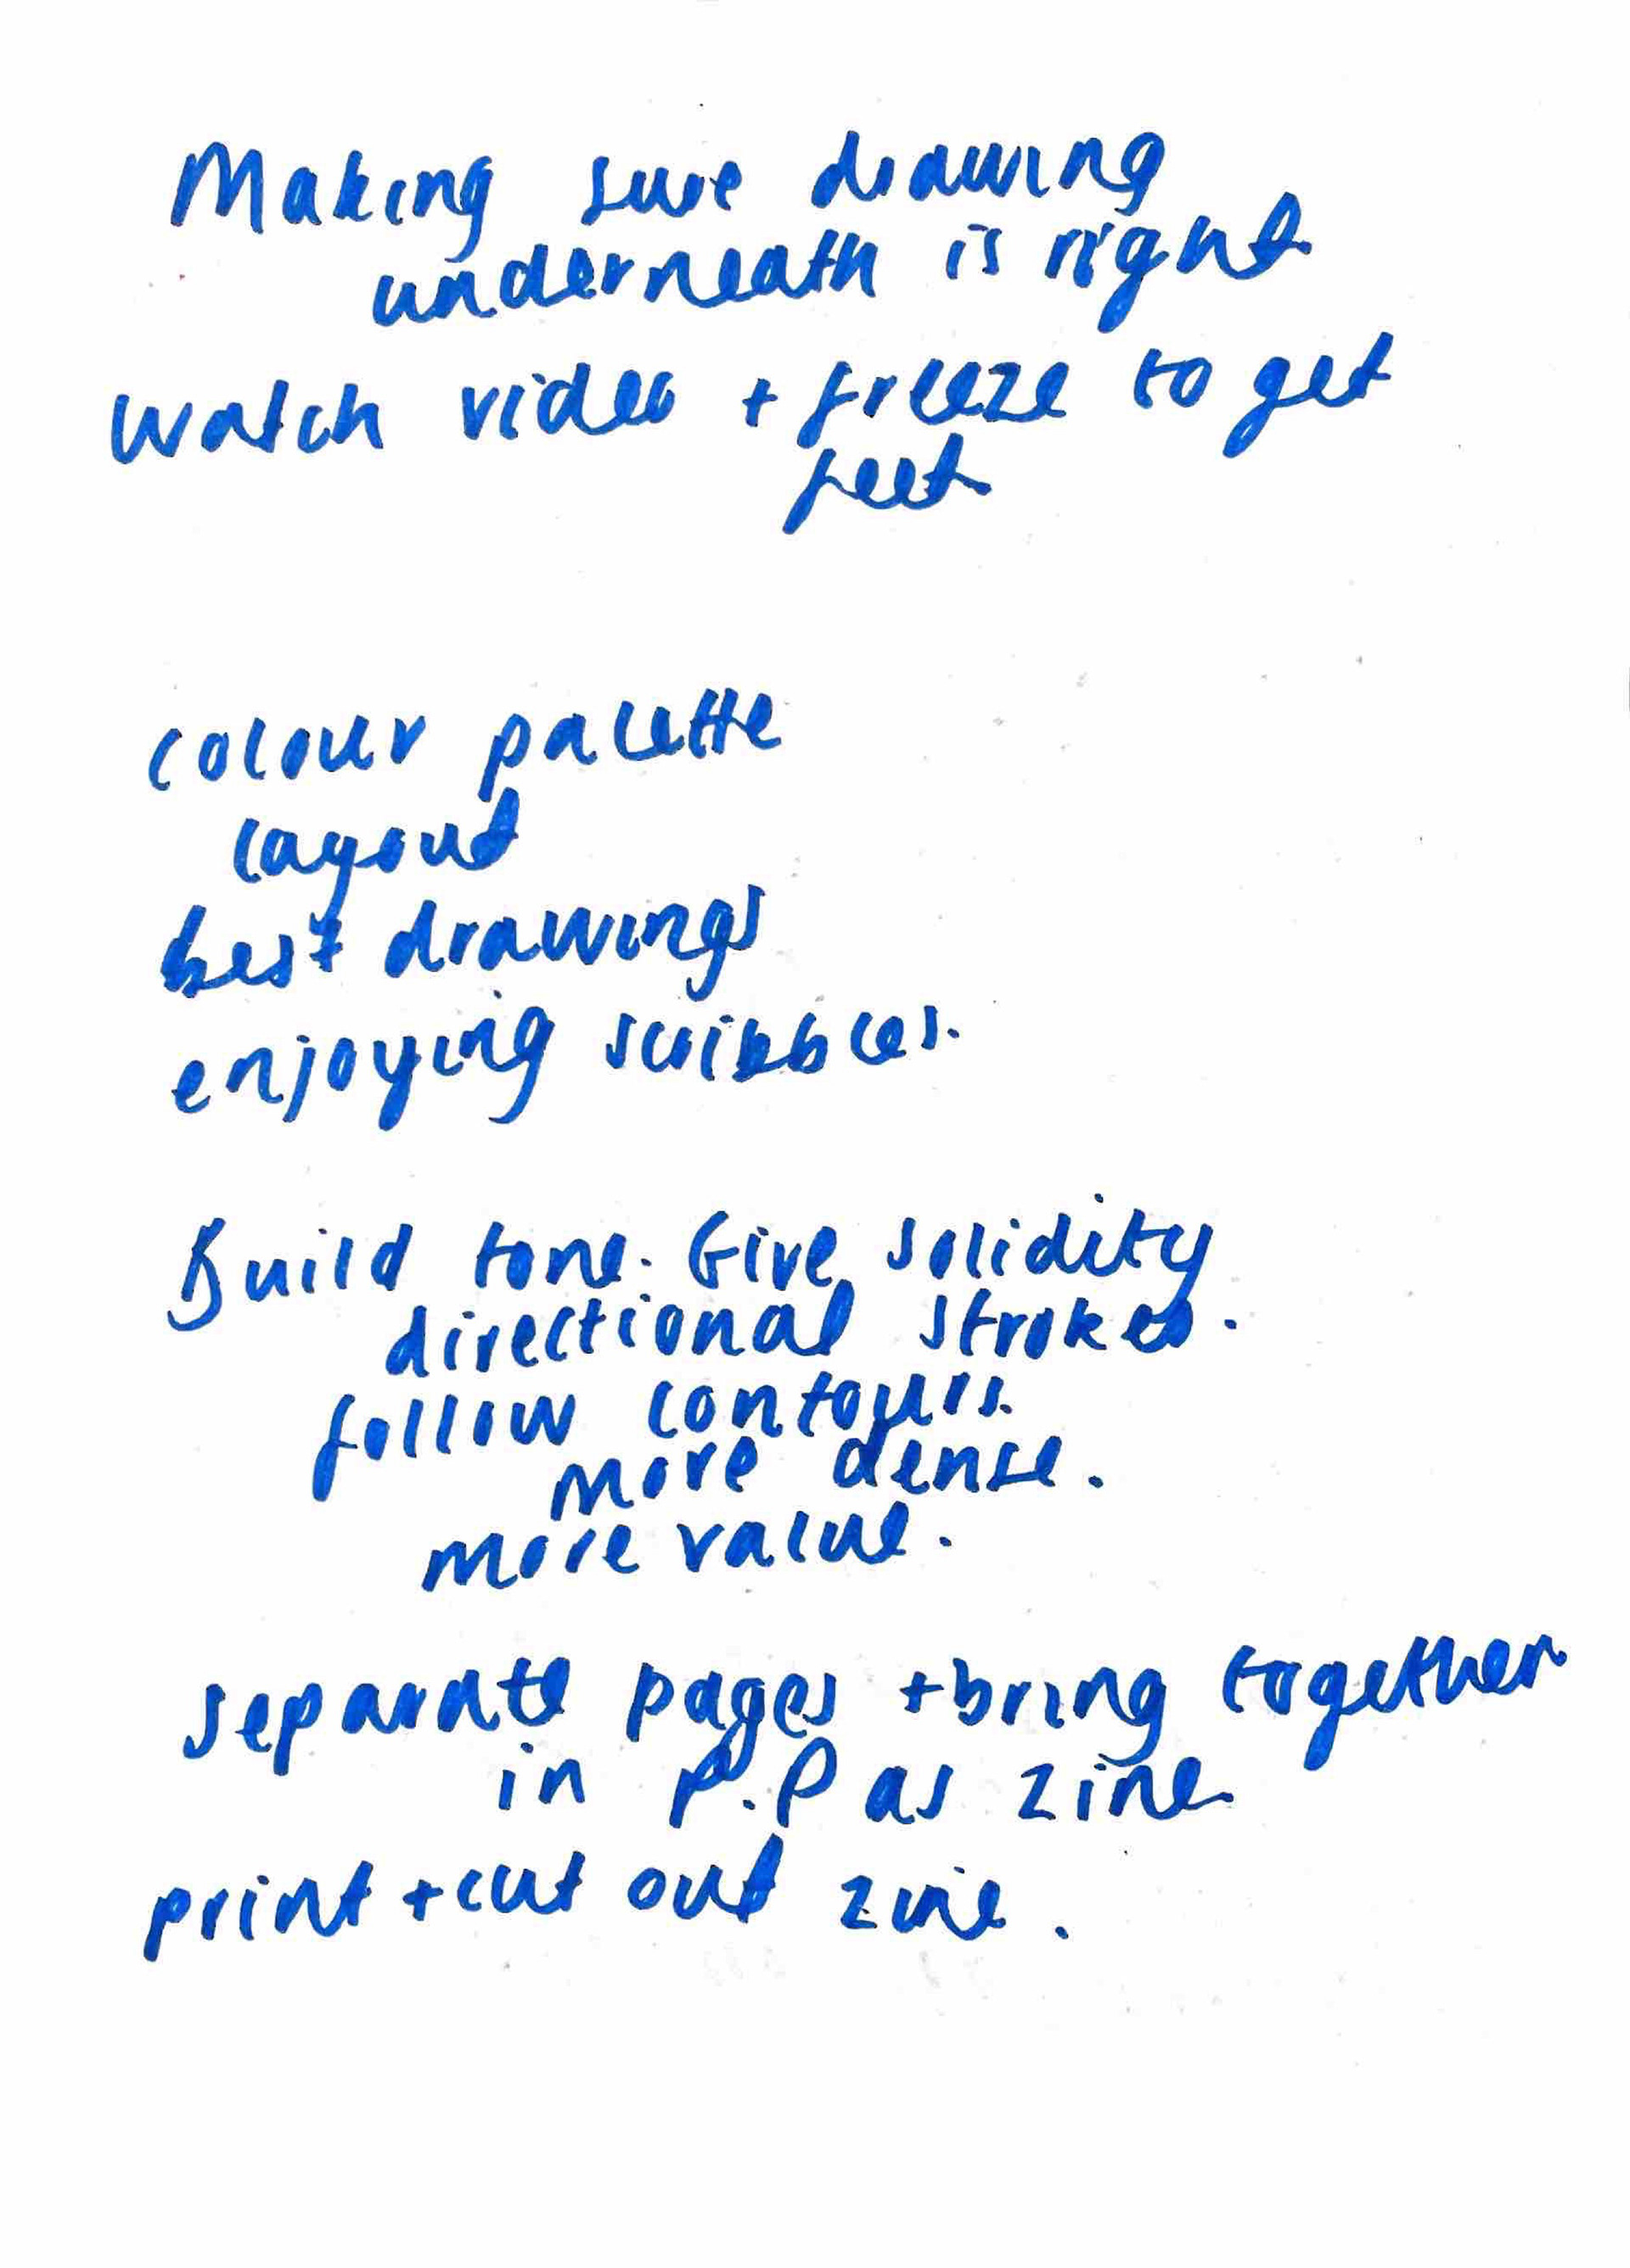 Making sure drawing
underneath is right
Watch video + freeze to get
feet
colour palette
layout
best drawings
enjoying scribbles.
Build tone. Give solidity
directional strokes.
follow contours.
More dense.
more value.
separate pages + bring together
in P.P as zine
print + cut out zine.